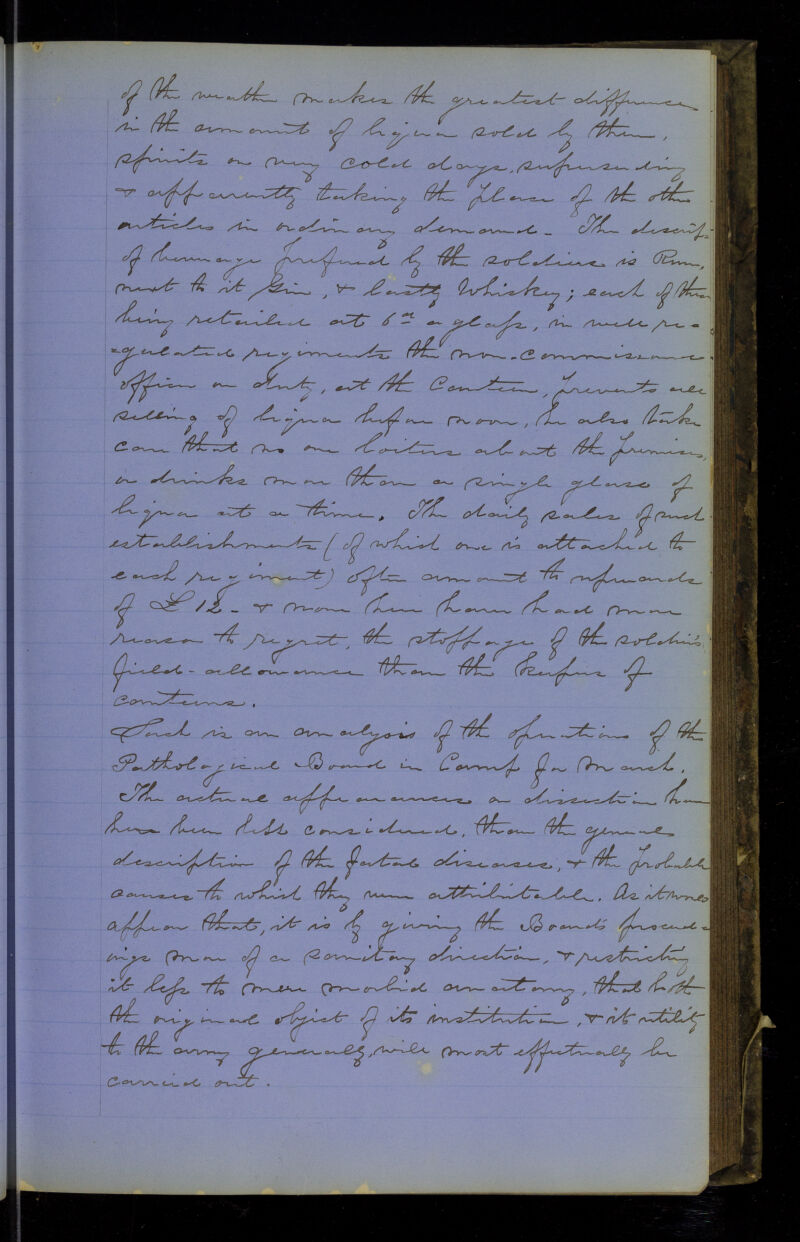 of the weather makes the greatest difference
in the amount of liquor sold by them,
spirits on very cold days, superseding
& apparently taking the place of the other
articles in ordinary demand - The descript=
of beverage prefered by the soldiers is Rum,
next to it Gin, & lastly Whiskey; each of these
being retailed at 6d a glass, in well re=
=gulated regiments the non-commissioned
officer on duty, at the Canteen, prevents all
selling of liquor before noon, he also takes
care that no one loiters about the premises,
or drinks more than a single glass of
liquor at a time. The daily sales of such
establishments (of which one is attached to
each regiment) often amount to upwards
of £ 12 - & none here have had more
reason to regret, the stoppage of the soldier's
field-allowance than the keepers of
canteens.
Such is an analysis of the operations of the
Pathological Board in Camp for March.
The actual appearances on dissection have
here been less considered, than the general
description of the fatal diseases, & the probable
causes to which they were attributable. As it would
appear that, it is by giving the Board's proceed=
ings more of a sanitary direction, & restricting
it less to mere morbid anatomy, that both
the original object of its institution, & its utility
to the army generally, will most effectually be
carried out.